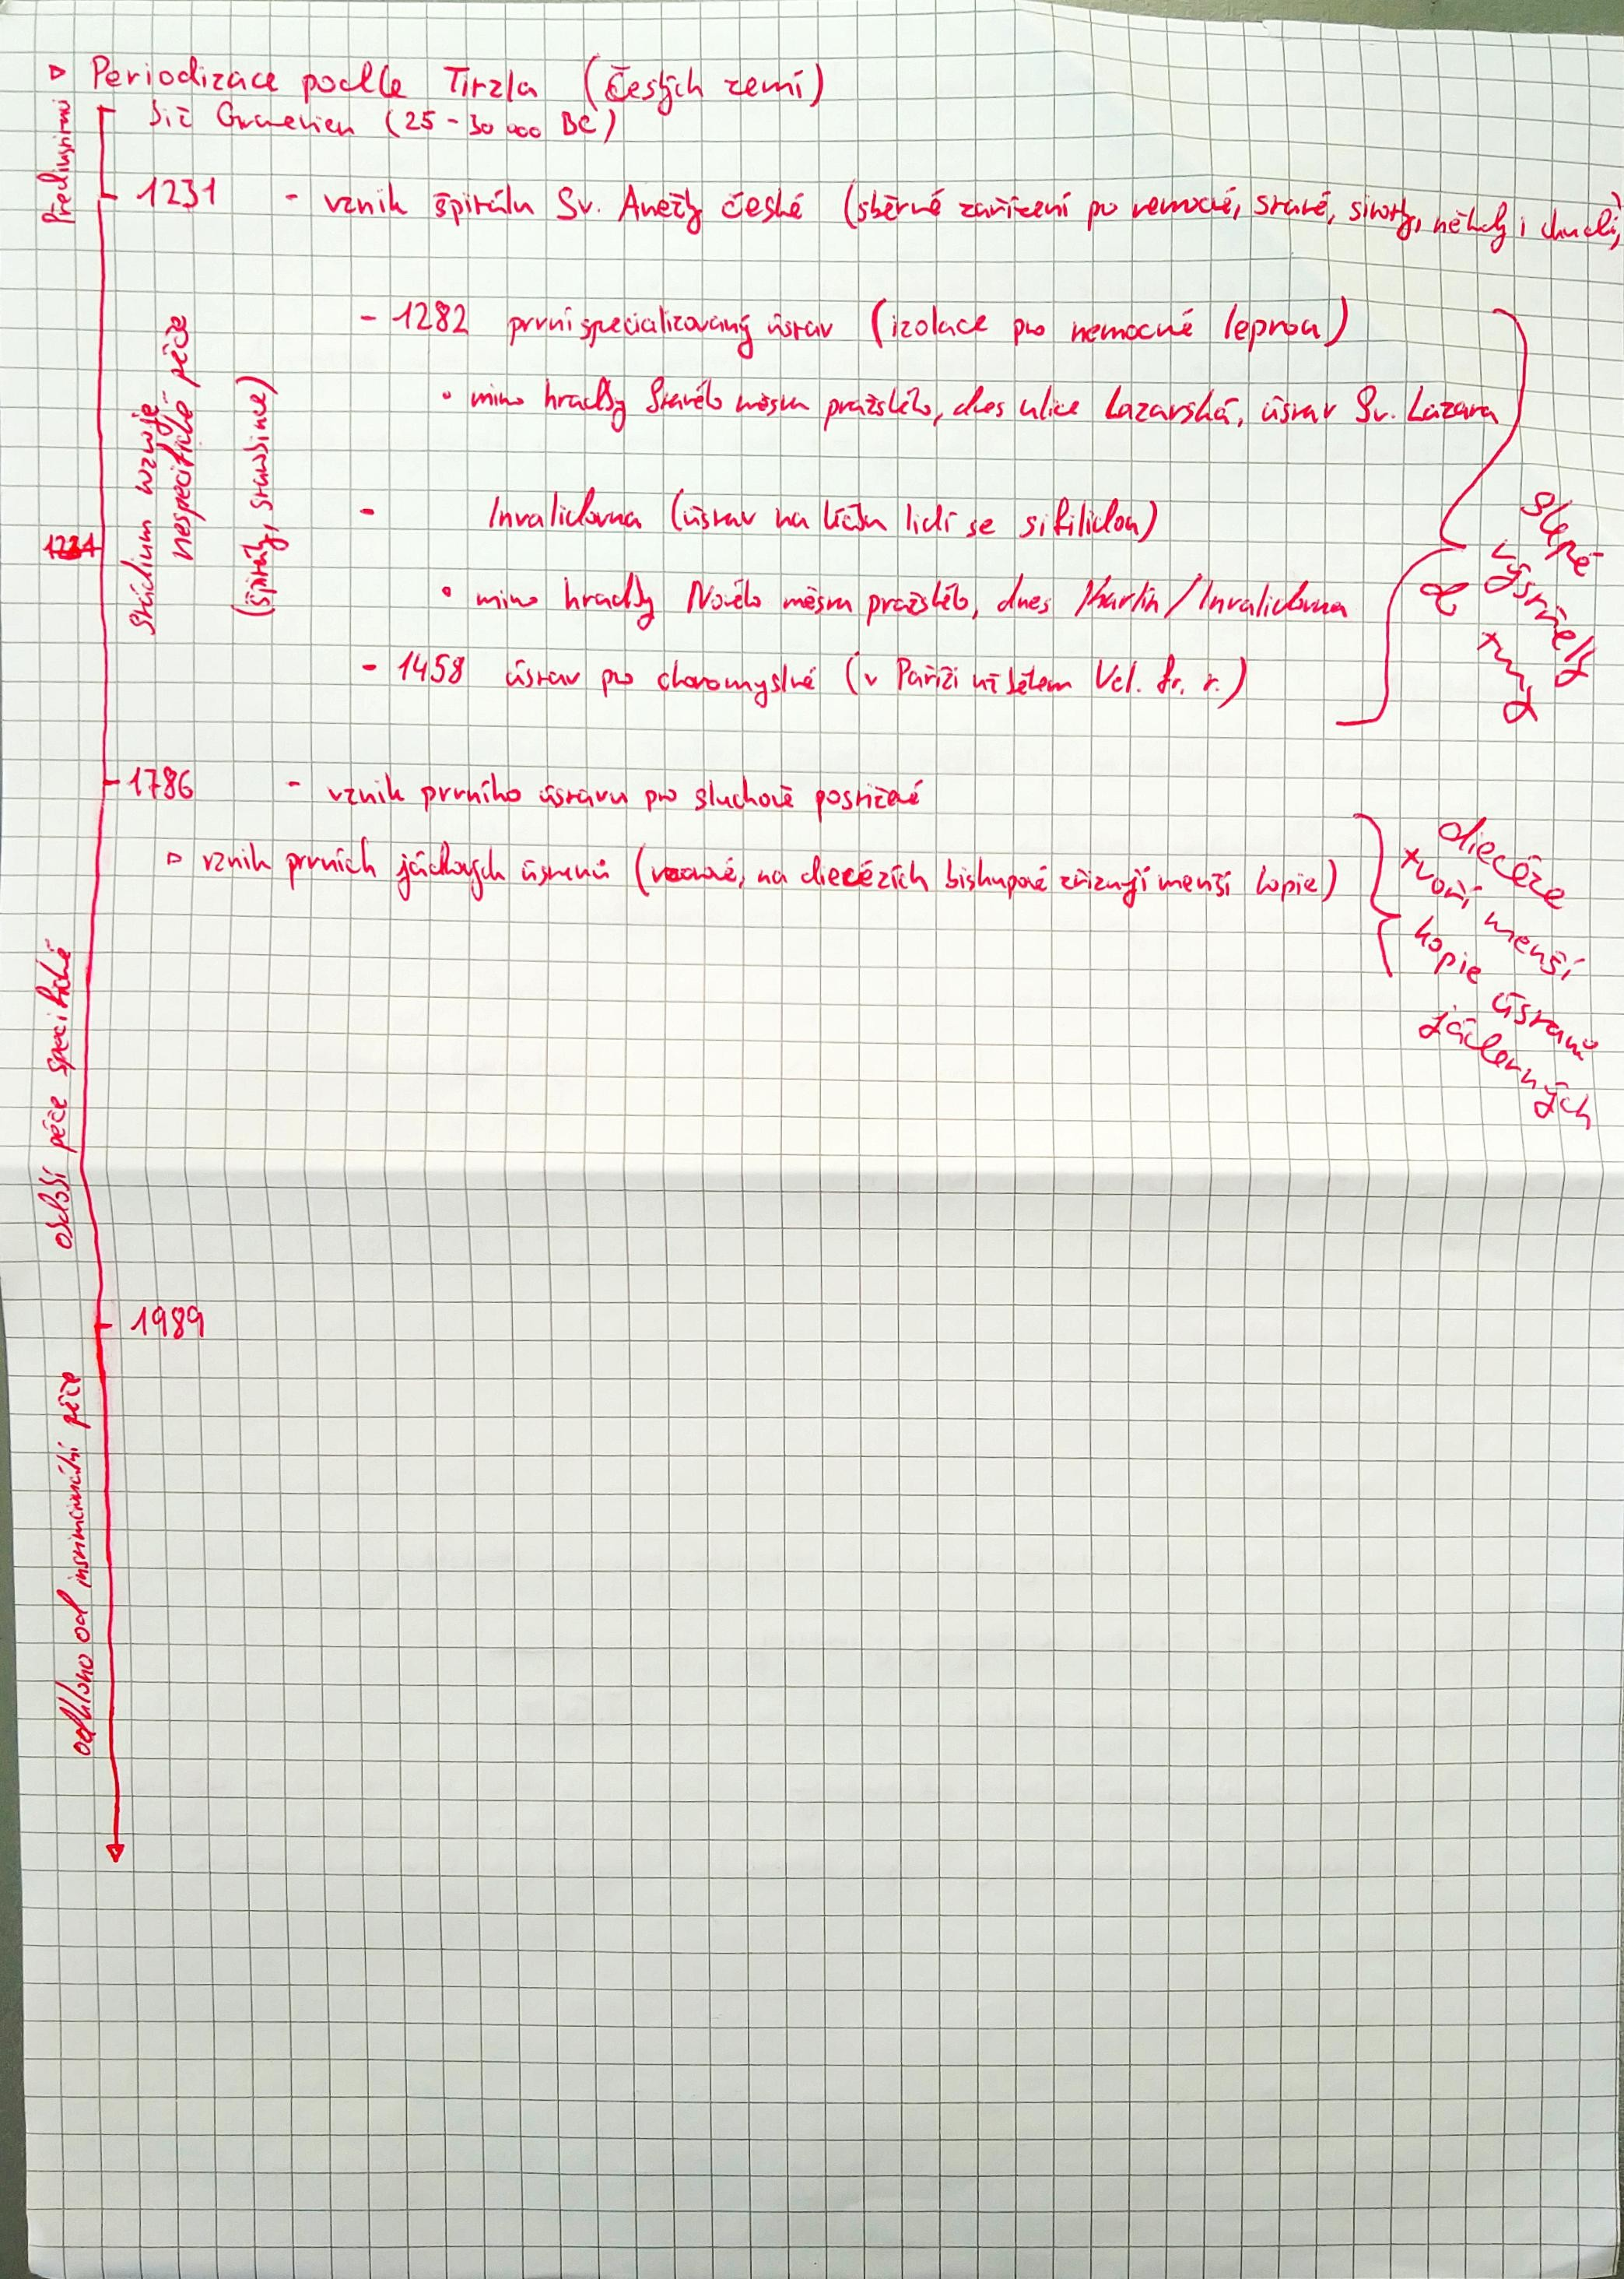 ▷ Periodizace podle Titzla (Českých zemí)
Předinstituc
již Gravetien (25 - 30 000 BC)
1231 - vznik špitálu Sv. Anežky české (sběrné zařízení pro nemocné, staré, sirotky, někdy i chudé)
Stádium vzniku
nespecifické péče
(špitály, starobince)
- 1282 první specializovaný ústav (izolace pro nemocné leprou)
• mimo hradby Starého města pražského, dnes ulice Lazarská, ústav Sv. Lazara
- Invalidovna (ústav na léčbu lidí se sifilidou)
• mimo hradby Nového města pražského, dnes Karlín/Invalidovna
- 1458 ústav pro choromyslné (v Paříži až během Vel. fr. r.)
slepé
výstřely
z
tmy
1786 - vznik prvního ústavu pro sluchově postižené
▷ vznik prvních jádových ústavů (vzorové, na diecézích biskupové zřizují menší kopie)
diecéze
tvoří menší
kopie ústavů
jádových
období péče specifické
1989
odklon od institucionální péče